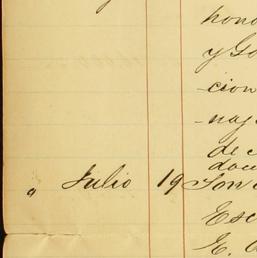 y
hono
y Go
cion
naj
de c
docu
" Julio 19 Son
Esc
E.